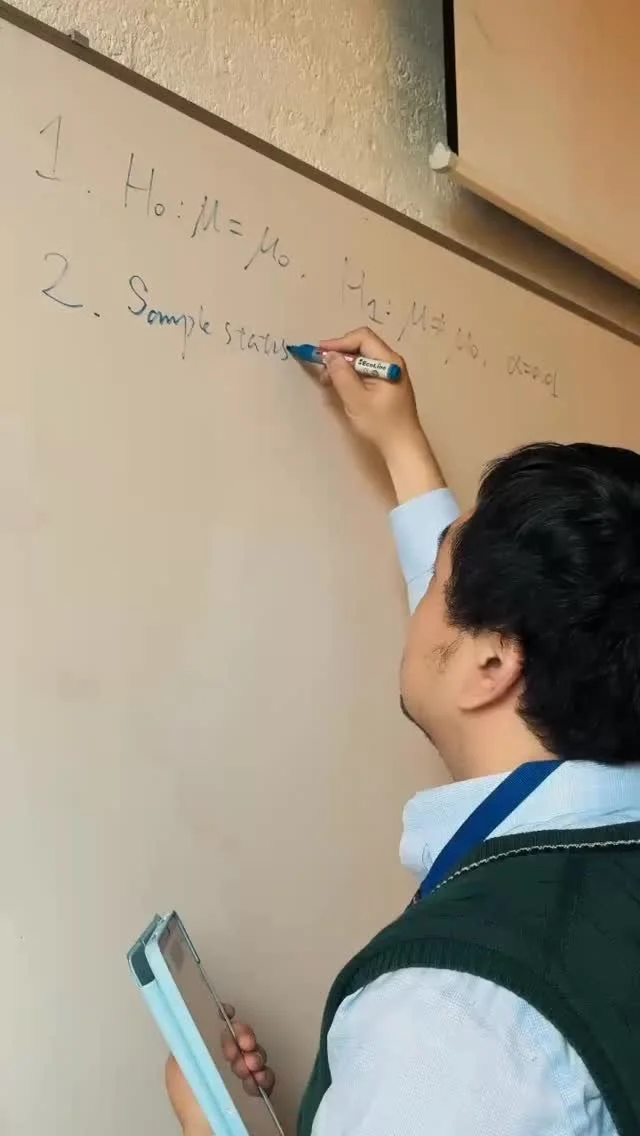 1. H₀: μ = μ₀. H₁: μ ≠ μ₀, α=0.01
2. Sample statis